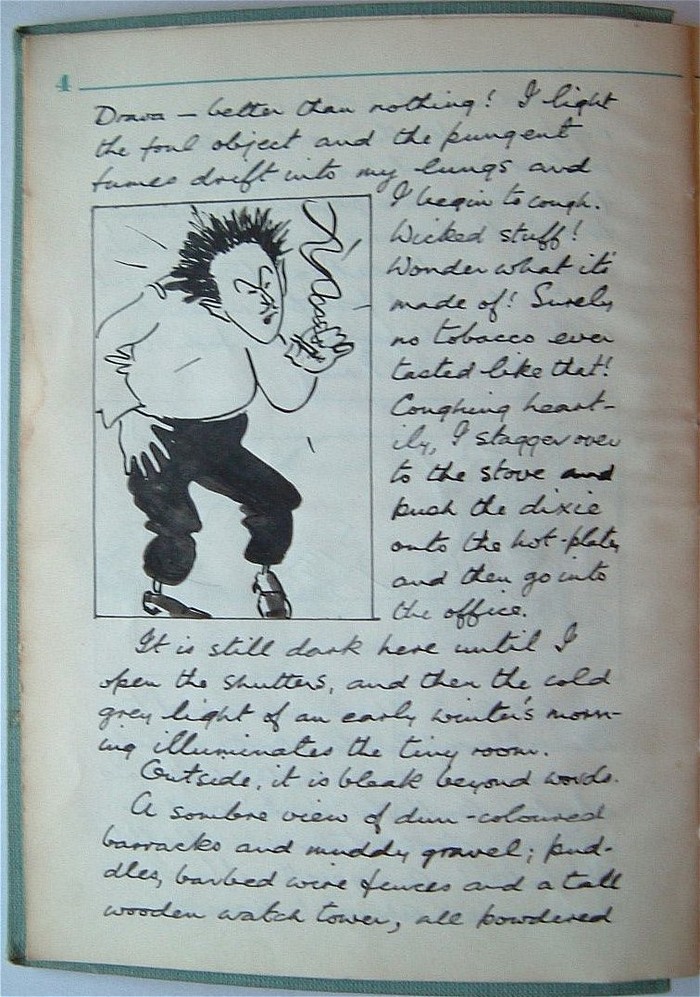 4
Drava — better than nothing! I light
the foul object and the pungent
fumes drift into my lungs and
I begin to cough.
Wicked stuff!
Wonder what it's
made of! Surely
no tobacco ever
tasted like that!
Coughing heart-
ily, I stagger over
to the stove and
push the dixie
onto the hot-plate,
and then go into
the office.
It is still dark here until I
open the shutters, and then the cold
grey light of an early winter's morn-
ing illuminates the tiny room.
Outside, it is bleak beyond words.
A sombre view of dun-coloured
barracks and muddy gravel; pud-
dles, barbed wire fences and a tall
wooden watch tower, all powdered